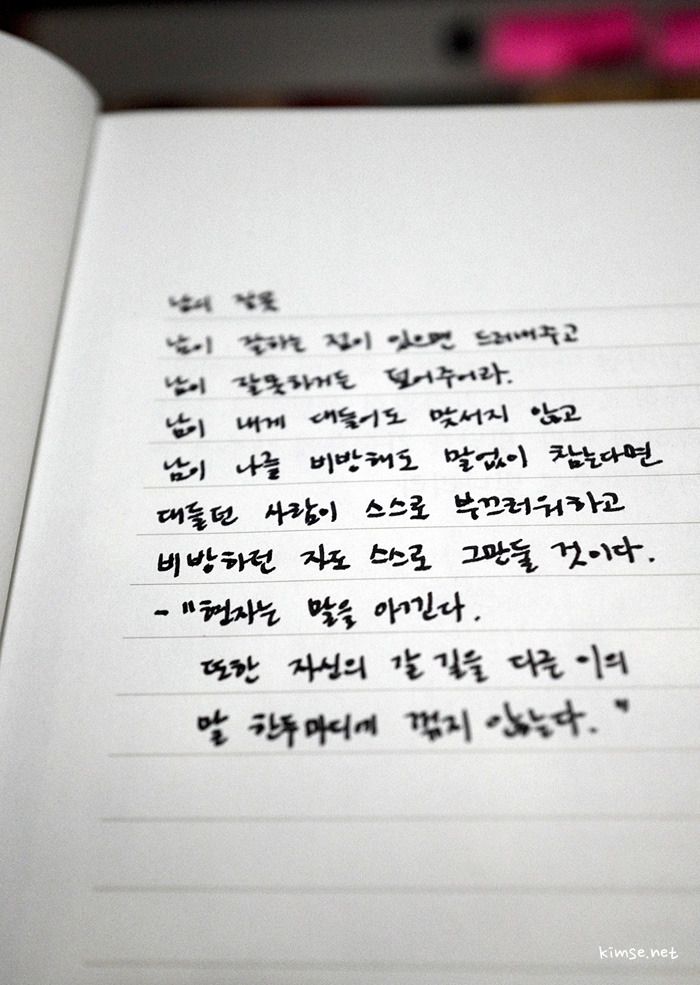 남의 잘못
남이 잘하는 점이 있으면 드러내주고
남이 잘못하거든 덮어주어라.
남이 내게 대들어도 맞서지 않고
남이 나를 비방해도 말없이 참는다면
대들던 사람이 스스로 부끄러워하고
비방하던 자도 스스로 그만둘 것이다.
- "현자는 말을 아낀다.
또한 자신의 갈 길을 다른 이의
말 한두마디에 꺾지 않는다."
kimse.net